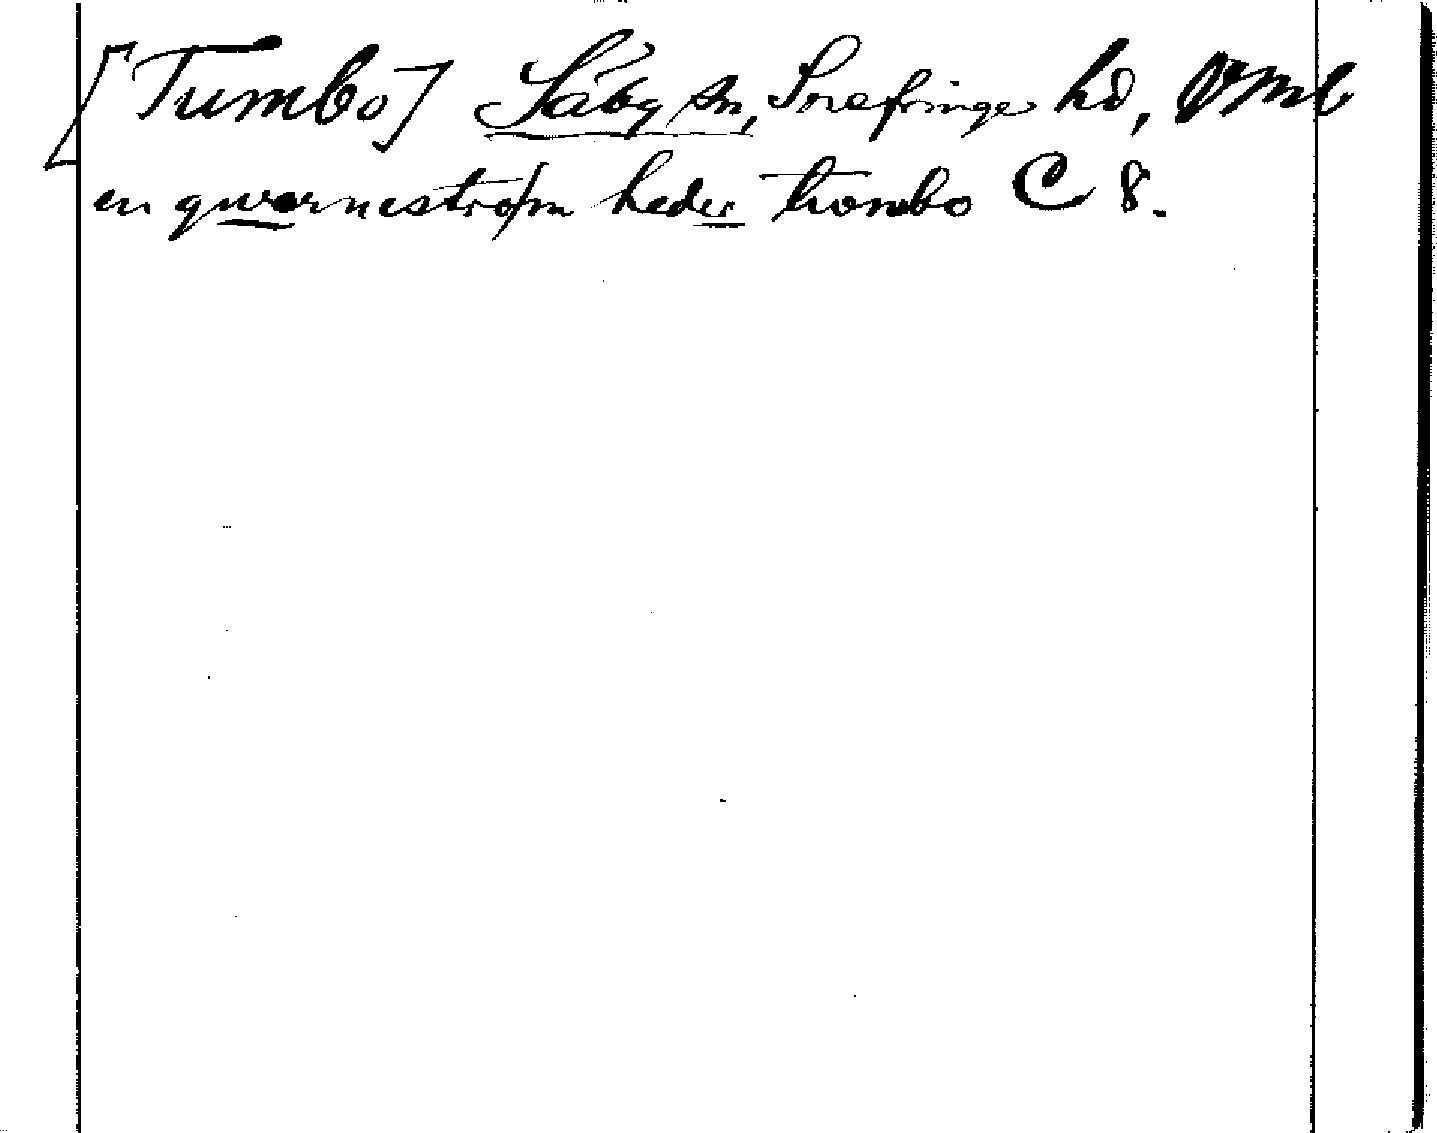 [Tumbo] Säby sn, Snefringe hd, Vml
en qwærnestrøm heder trombo C 8.